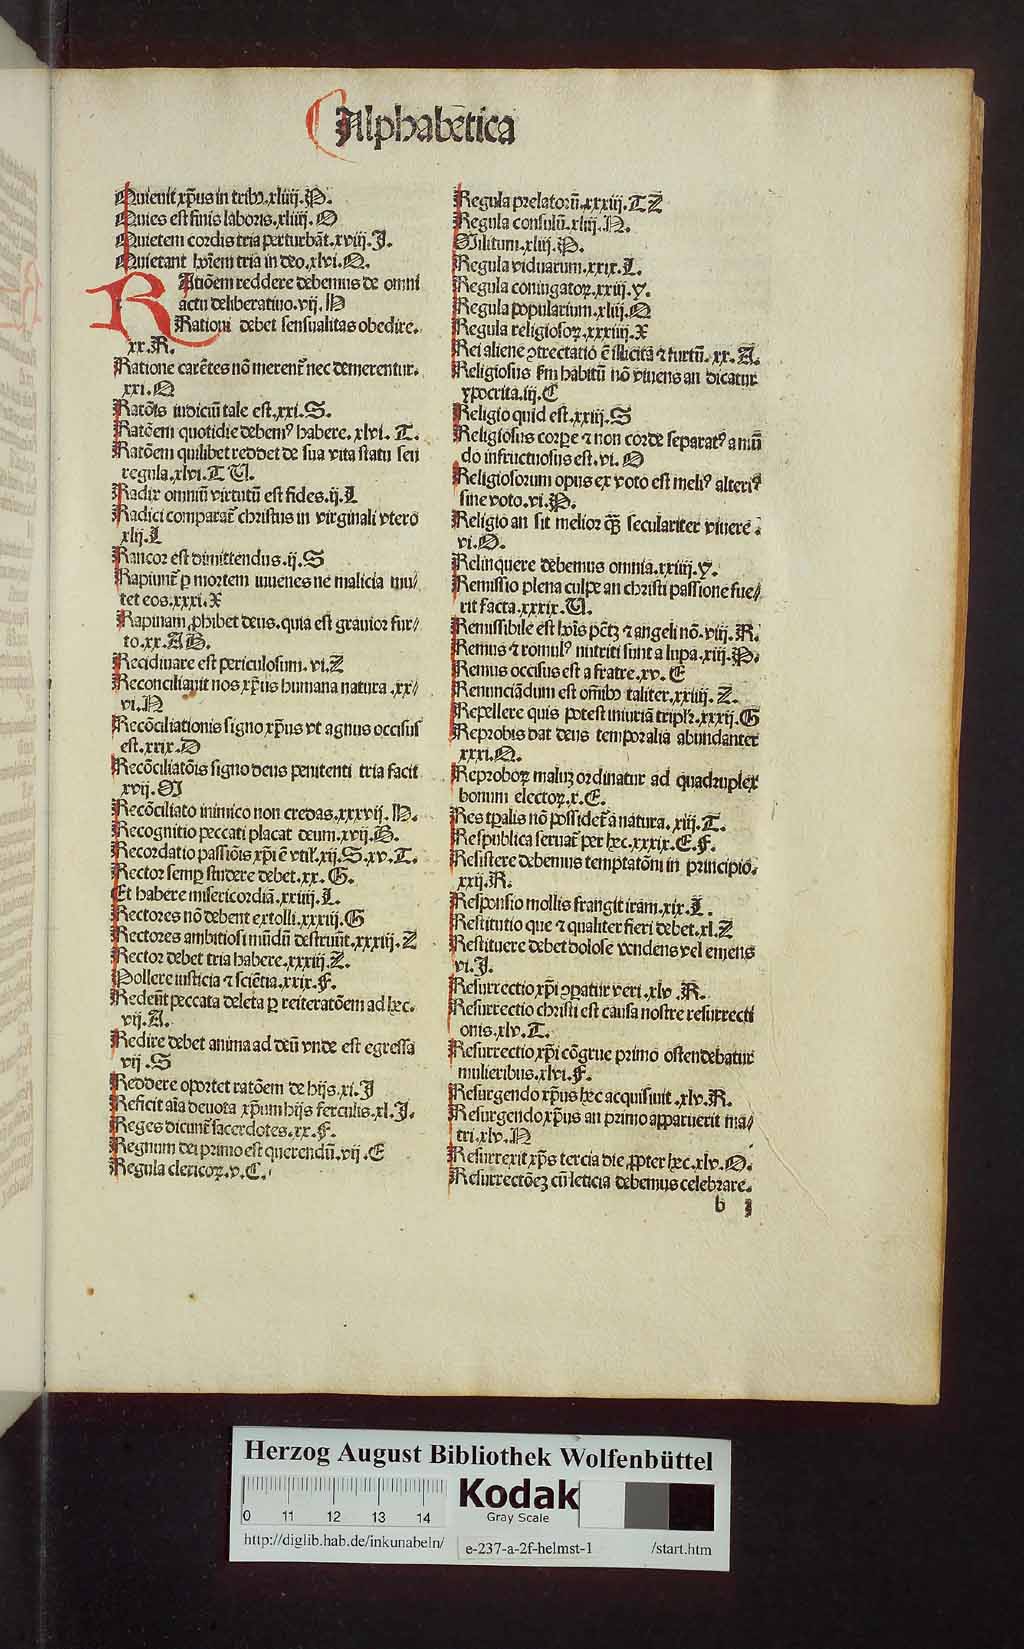 Alphabētica
Quieuit xp̄us in tribꝫ.xliiij.P.
Quies est finis laboris.xliiij.O
Quietem cordis tria perturbāt.xviij.J.
Quietant hoīem tria in deo.xlvi.Q.
RAtiōem reddere debemus de omni
actu deliberatiuo.vij.H
Rationi debet sensualitas obedire.
xx.R.
Ratione carētes nō merent᷑ nec demerentur.
xxi.Q
Ratōis iudiciū tale est.xxi.S.
Ratōem quotidie debemꝰ habere.xlvi.T.
Ratōem quilibet reddet de sua vita statu seu
regula.xlvi.T U.
Radix omniū virtutū est fides.ij.L
Radici comparat᷑ christus in virginali vtero
xlij.L
Rancor est dimittendus.ij.S
Rapiunt᷑ ꝑ mortem iuuenes ne malicia mu/
tet eos.xxxi.X
Rapinam ꝓhibet deus.quia est grauior fur/
to.xx.A B.
Recidiuare est periculosum.vi.Z
Reconciliauit nos xp̄us humana natura.xx/
vi.N
Recōciliationis signo xp̄us vt agnus occisus
est.xxix.O
Recōciliatōis signo deus penitenti tria facit
xvij.M
Recōciliato inimico non credas.xxxvij.H.
Recognitio peccati placat deum.xvij.B.
Recordatio passiōis xp̄i ē vtil᷑.xij.S.xv.T.
Rector semꝑ studere debet.xx.G.
Et habere misericordiā.xxiiij.L.
Rectores nō debent extolli.xxxiij.G
Rectores ambitiosi mūdū destruūt.xxxiij.Z
Rector debet tria habere.xxxiij.Z.
Pollere iusticia ⁊ sciētia.xxix.F.
Redeūt peccata deleta ꝑ reiteratōem ad hec.
vij.A.
Redire debet anima ad deū vnde est egressa
vij.S
Reddere oportet ratōem de hijs.xi.J
Reficit aīa deuota xp̄um hijs ferculis.xl.J.
Reges dicunt᷑ sacerdotes.xx.F.
Regnum dei primo est querendū.vij.E
Regula clericoꝝ.v.C.
Regula prelatorū.xxxiij.T Z
Regula consulū.xliij.N.
Militum.xliij.P.
Regula viduarum.xxix.L.
Regula coniugatoꝝ.xxiij.Y.
Regula popularium.xliij.Q
Regula religiosoꝝ.xxxiiij.X
Rei aliene ↄtrectatio ē illicita ⁊ furtū.xx.A.
Religiosus ẜm habitū nō viuens an dicatur
ypocrita.iij.C
Religio quid est.xxiij.S
Religiosus corꝑe ⁊ non corde separatꝰ a mū
do infructuosus est.vi.O
Religiosorum opus ex voto est meliꝰ alteriꝰ
sine voto.vi.P.
Religio an sit melior qȝ̄ seculariter viuere.
vi.O.
Relinquere debemus omnia.xxiiij.Y.
Remissio plena culpe an christi passione fue/
rit facta.xxxix.U.
Remissibile est hoīs pctꝫ̄ ⁊ angeli nō.viij.R.
Remus ⁊ romulꝰ nutriti sunt a lupa.xiij.P.
Remus occisus est a fratre.xv.E
Renunciādum est oībꝫ taliter.xxiiij.Z.
Repellere quis potest iniuriā tripl᷑r.xxxij.G
Reprobis dat deus temporalia abundanter
xxxi.Q.
Reproboꝝ maluꝫ ordinatur ad quadruplex
bonum electoꝝ.x.E.
Res tp̄alis nō possidet᷑ a natura.xiij.T.
Respublica seruat᷑ per hec.xxxix.E.F.
Resistere debemus temptatōni in principio.
xxij.R.
Responsio mollis frangit iram.xix.L.
Restitutio que ⁊ qualiter fieri debet.xl.Z
Restituere debet dolose vendens vel emens
vi.J.
Resurrectio xp̄i ↄꝑatur veri.xlv.R.
Resurrectio christi est causa nostre resurrecti
onis.xlv.T.
Resurrectio xp̄i cōgrue primo ostendebatur
mulieribus.xlvi.F.
Resurgendo xp̄us hec acquisiuit.xlv.R.
Resurgendo xp̄us an primo apparuerit ma/
tri.xlv.N
Resurrexit xp̄s tercia die ꝓpter hec.xlv.O.
Resurrectōeꝫ cū leticia debemus celebrare.
b 3
Herzog August Bibliothek Wolfenbüttel
0 11 12 13 14
Kodak
Gray Scale
http://diglib.hab.de/inkunabeln/ e-237-a-2f-helmst-1 /start.htm